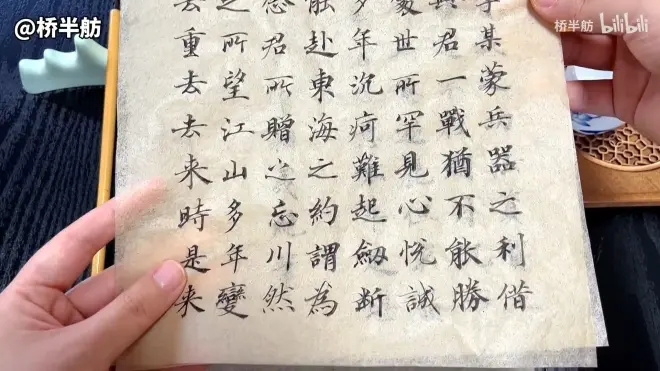 @桥半舫
桥半舫 bilibili
某蒙兵器之利偕
君一戰猶不能勝
世所罕見心悦誠
多年沉疴難起劔断
能赴東海之約謂為
君所贈之忘川然
之所望江山多年變
去重去去来時是来